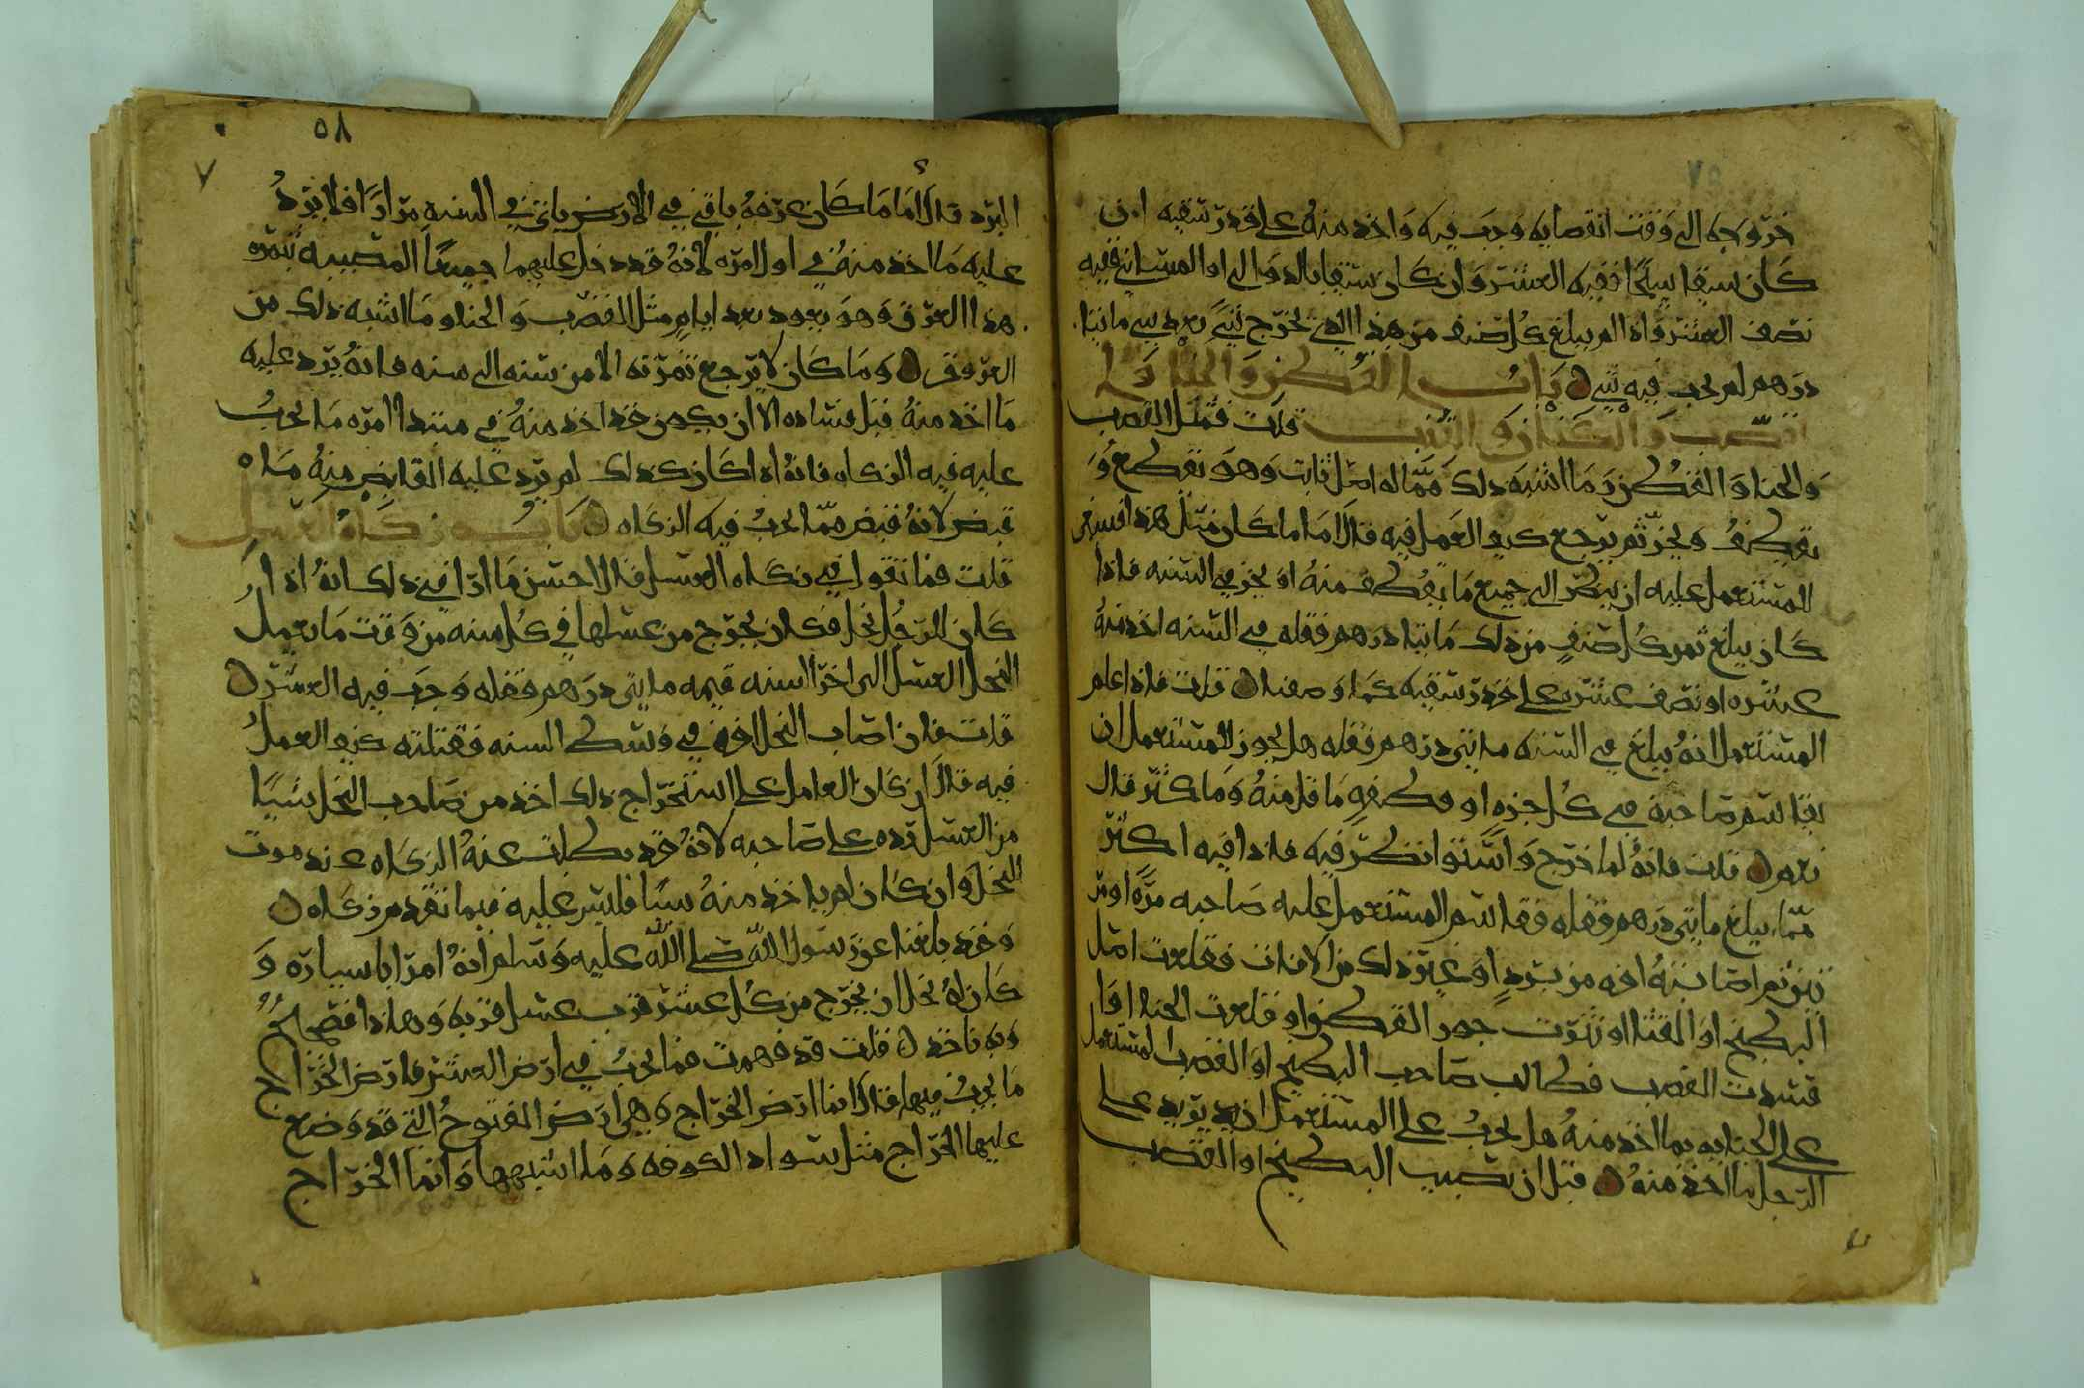 خروجه الى وقت انقضايه وجب فيه واخذ منه على قدر سقيه ان
كان سقا سيحا ففيه العشر وان كان سقيا بالدوالي او المساني ففيه
نصف العشر واذا لم يبلغ كل صنف من هذا الذي يخرج شي بعد شي ماتيا
درهم لم يجب فيه شي باب القطن والحنا وا
لقضب والكتان والقنب قلت فمثل القضب
والحنا والقطن وما اشبه ذلك مما له اصل ثابت وهو يقطع و
يقطف ويجز ثم يرجع كيف العمل فيه قال اما ما كان مثل هذا فينبغي
للمستعمل عليه ان ينظر الى جميع ما يقطف منه او يجز في السنه فاذا
كان يبلغ ثمر كل صنف من ذلك ماتيا درهم قفله في السنه اخذ منه
عشره او نصف عشره على قدر سقيه كما وصفنا قلت فاذا علم
المستعمل انه يبلغ في السنه مايتى درهم قفله هل يجوز للمستعمل ان
يقاسم صاحبه في كل جزه او قطفه ما قل منه وما كثر قال
نعم قلت فانه لما خرج واستوا نظر فيه فاذا فيه اكثر
مما يبلغ مايتى درهم قفله فقاسم المستعمل عليه صاحبه مرة او مر
تين ثم اصابته افه من برد او غير ذلك من الافات فقلعت اصل
البطيخ او القثا او تنورت جور القطن او قلعت الحنا او ا
فسدت القضب فطالب صاحب البطيخ او القضب المستعمل
على الجبايه بما اخذ منه هل يجب على المستعمل ان يرد على
الرجل ما اخذ منه قبل ان تصيب البطيخ او القضب
٥٨
٧
البرد قال اما ما كان عرقه باقي في الارض ياتي في السنه مرارا فلا يرد
عليه ما اخذ منه في اول مره لانه قد دخل عليهما جميعا المصيبه بثمره
هذا العرق وهو يعود بعد ايام مثل القضب والحنا وما اشبه ذلك من
العروق وما كان لا يرجع ثمرته الا من سنه الى سنه فانه يرد عليه
ما اخذ منه قبل فساده الا ان يكون قد اخذ منه في مبتدا امره ما يجب
عليه فيه الزكاه فانه اذا كان كذلك لم يرد عليه القابض منه ما
قبض لانه قبض مما يجب فيه الزكاه باب زكاة العسل
قلت فما تقول في زكاه العسل قال احسن ما ارا في ذلك انه اذا
كان للرجل نحل فكان يخرج من عسلها في كل سنه من وقت ما يعمل
النحل العسل الى اخر السنه قيمه مايتى درهم قفله وجب فيه العشر
قلت فان اصاب النحل افه في وسط السنه فقتلته كيف العمل
فيه قال ان كان العامل على استخراج ذلك اخذ من صاحب النحل شيا
من العسل رده على صاحبه لانه قد بطلت عنه الزكاه عند موت
النحل وان كان لم ياخذ منه شيا فليس عليه فيما تقدم زكاه
وقد بلغنا عن رسول الله صلى الله عليه وسلم انه امر ابا سياره و
كان له نحل ان يخرج من كل عشر قرب عسل قربه وهاذا فصحيح
وبه ناخذ قلت قد فهمت فما يجب في ارض العشر فارض الخراج
ما يجب فيها قال انما ارض الخراج وهي ارض المفتوح التي قد وضع
عليها الخراج مثل سواد الكوفه وما اشبهها وانما الخراج